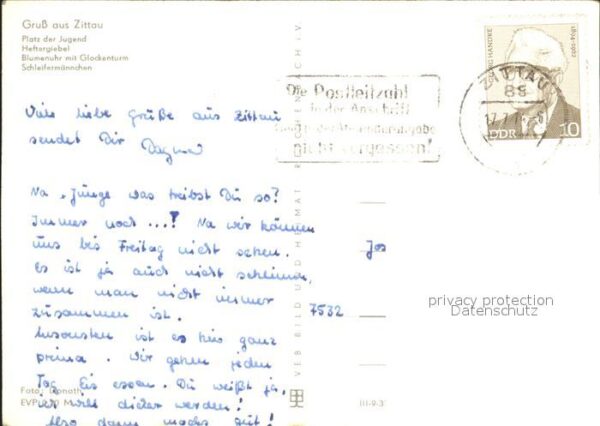 Gruß aus Zittau
Platz der Jugend
Heftergiebel
Blumenuhr mit Glockenturm
Schleifermännchen
Viele liebe Grüße aus Zittau
sendet Dir Dagmar
Na, Junge was treibst Du so?
Immer noch ...? Na wir können
uns bis Freitag nicht sehen.
Es ist ja auch nicht schlimm,
wenn man nicht immer
zusammen ist.
Ansonsten ist es hier ganz
prima. Wir gehen jeden
Tag Eis essen. Du weißt ja,
wir dicker werden!
Also dann machs gut!
Foto: Donath
EVP
VEB BILD UND HEIMAT REICHENBACH I. V.
Die Postleitzahl
in der Anschrift
nicht vergessen!
ZITTAU
88
DDR
10
Jos
7532
privacy protection
Datenschutz